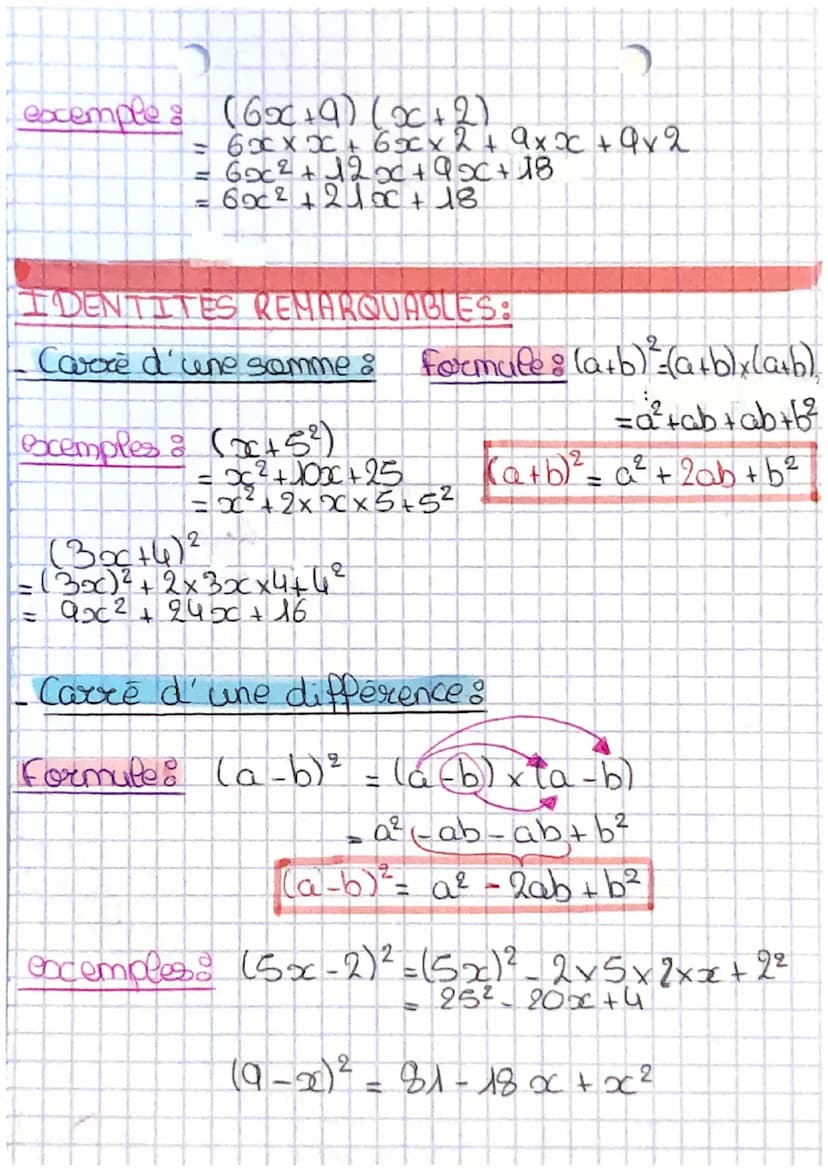 exemple : (6x+9) (x+2)
= 6x×x + 6x×2 + 9×x + 9×2
= 6x² + 12x + 9x + 18
= 6x² + 21x + 18
IDENTITÉS REMARQUABLES :
- Carré d'une somme : formule : (a+b)²=(a+b)×(a+b)
=a²+ab+ab+b²
exemples : (x+5²)
= x²+10x+25
(a+b)² = a² + 2ab + b²
= x²+2×x×5+5²
(3x+4)²
=(3x)² + 2×3x×4+4²
= 9x² + 24x + 16
- Carré d'une différence :
formule : (a-b)² = (a-b) × (a-b)
= a² - ab - ab + b²
(a-b)² = a² - 2ab + b²
exemples : (5x-2)² = (5x)² - 2×5×2×x + 2²
= 25² - 20x + 4
(9-x)² = 81 - 18x + x²